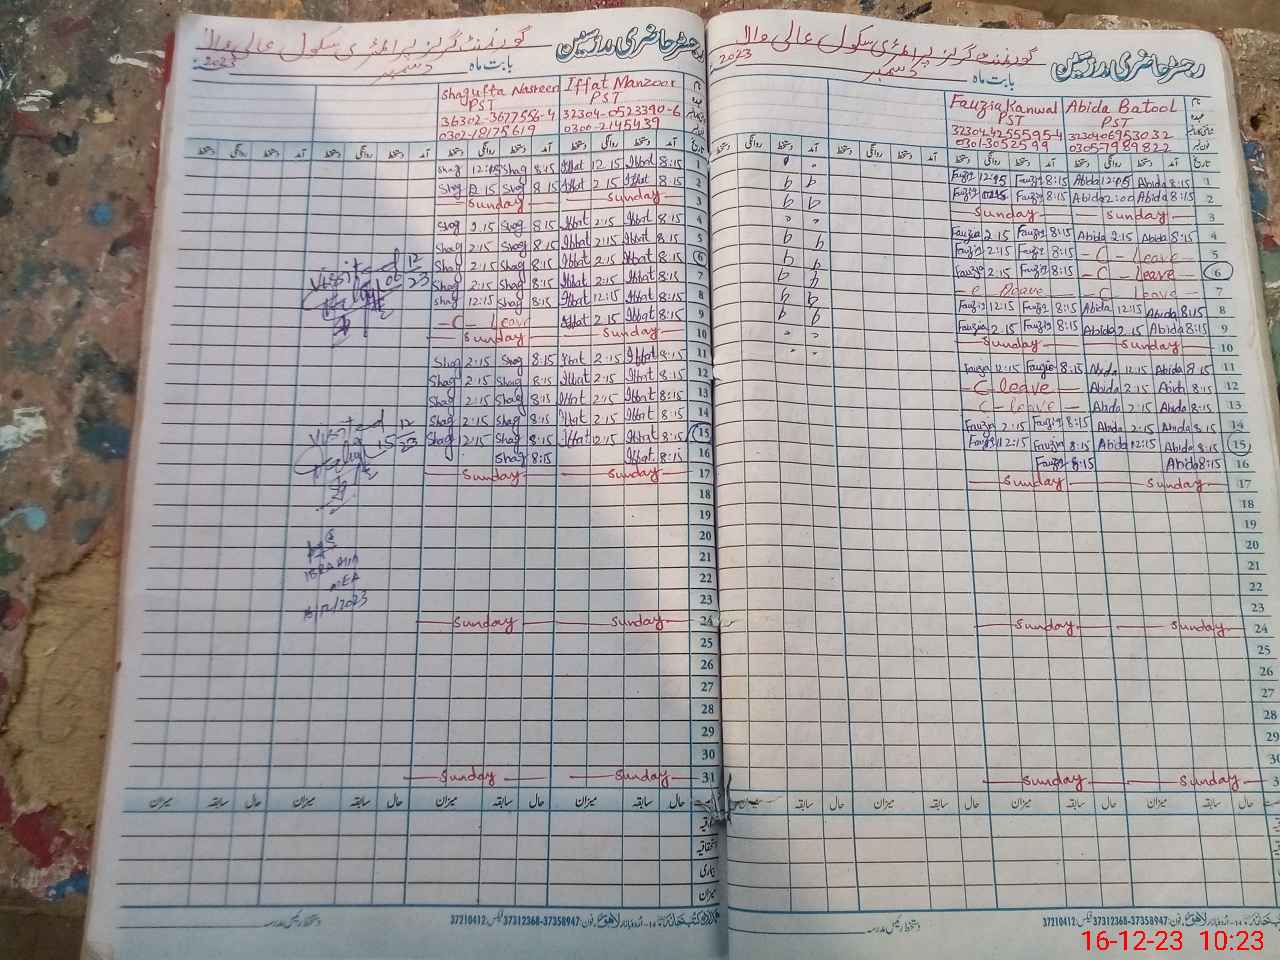 گورنمنٹ گرلز پرائمری سکول عالی والا
رجسٹر حاضری مدرسین
بابت ماہ دسمبر 2023
Fauzia Kanwal Abida Batool
PST PST
32304-4255595-4 3230406953032
0301-3052599 03057989822
آمد دستخط روانگی دستخط
Fauzia 12:15 Fauzia 8:15 Abida 12:15 Abida 8:15 1
Fauzia Fauzia 8:15 Abida 2:00 Abida 8:15 2
Sunday Sunday 3
Fauzia 2:15 Fauzia 8:15 Abida 2:15 Abida 8:15 4
Fauzia 2:15 Fauzia 8:15 - C - Leave - 5
Fauzia 2:15 Fauzia 8:15 - C - leave - 6
- C leave - C - leave - 7
Fauzia 12:15 Fauzia 8:15 Abida 12:15 Abida 8:15 8
Fauzia 2:15 Fauzia 8:15 Abida 2:15 Abida 8:15 9
Sunday Sunday 10
Fauzia 12:15 Fauzia 8:15 Abida 12:15 Abida 8:15 11
- C leave - Abida 2:15 Abida 8:15 12
C - leave - Abida 2:15 Abida 8:15 13
Fauzia 2:15 Fauzia 8:15 Abida 2:15 Abida 8:15 14
Fauzia 12:15 Fauzia 8:15 Abida 12:15 Abida 8:15 15
Fauzia 8:15 Abida 8:15 16
Sunday Sunday 17
18
19
20
21
22
23
Sunday Sunday 24
25
26
27
28
29
30
Sunday Sunday 3
حال سابقہ میزان حال سابقہ میزان
37210412:فیکس 37312368-37358947:فون
گورنمنٹ گرلز پرائمری سکول عالی والا
رجسٹر حاضری مدرسین
بابت ماہ دسمبر 2023
Shagufta Nasreen Iffat Manzoor
PST PST
36302-3677556-4 32304-0523390-6
0302-18175619 0300-2145439
آمد دستخط روانگی دستخط
Shag 12:15 Shag 8:15 Iffat 12:15 Iffat 8:15 1
Shag 2:15 Shag 8:15 Iffat 2:15 Iffat 8:15 2
Sunday Sunday 3
Shag 2:15 Shag 8:15 Iffat 2:15 Iffat 8:15 4
Shag 2:15 Shag 8:15 Iffat 2:15 Iffat 8:15 5
Shag 2:15 Shag 8:15 Iffat 2:15 Iffat 8:15 6
Shag 2:15 Shag 8:15 Iffat 2:15 Iffat 8:15 7
Shag 12:15 Shag 8:15 Iffat 12:15 Iffat 8:15 8
- C - Leave Iffat 2:15 Iffat 8:15 9
Sunday Sunday 10
Shag 2:15 Shag 8:15 Iffat 2:15 Iffat 8:15 11
Shag 2:15 Shag 8:15 Iffat 2:15 Iffat 8:15 12
Shag 2:15 Shag 8:15 Iffat 2:15 Iffat 8:15 13
Shag 2:15 Shag 8:15 Iffat 2:15 Iffat 8:15 14
Shag 12:15 Shag 8:15 Iffat 12:15 Iffat 8:15 15
Shag 8:15 Iffat 8:15 16
Sunday Sunday 17
18
19
20
21
22
23
Sunday Sunday 24
25
26
27
28
29
30
Sunday Sunday 31
حال سابقہ میزان حال سابقہ میزان
اتفاقیہ
بیماری
میزان
37210412:فیکس 37312368-37358947:فون
دستخط رئیس مدرسہ
Visited
06/12/23
Visited
15/12/23
IBRAHIM
MEA
16/12/2023
16-12-23 10:23